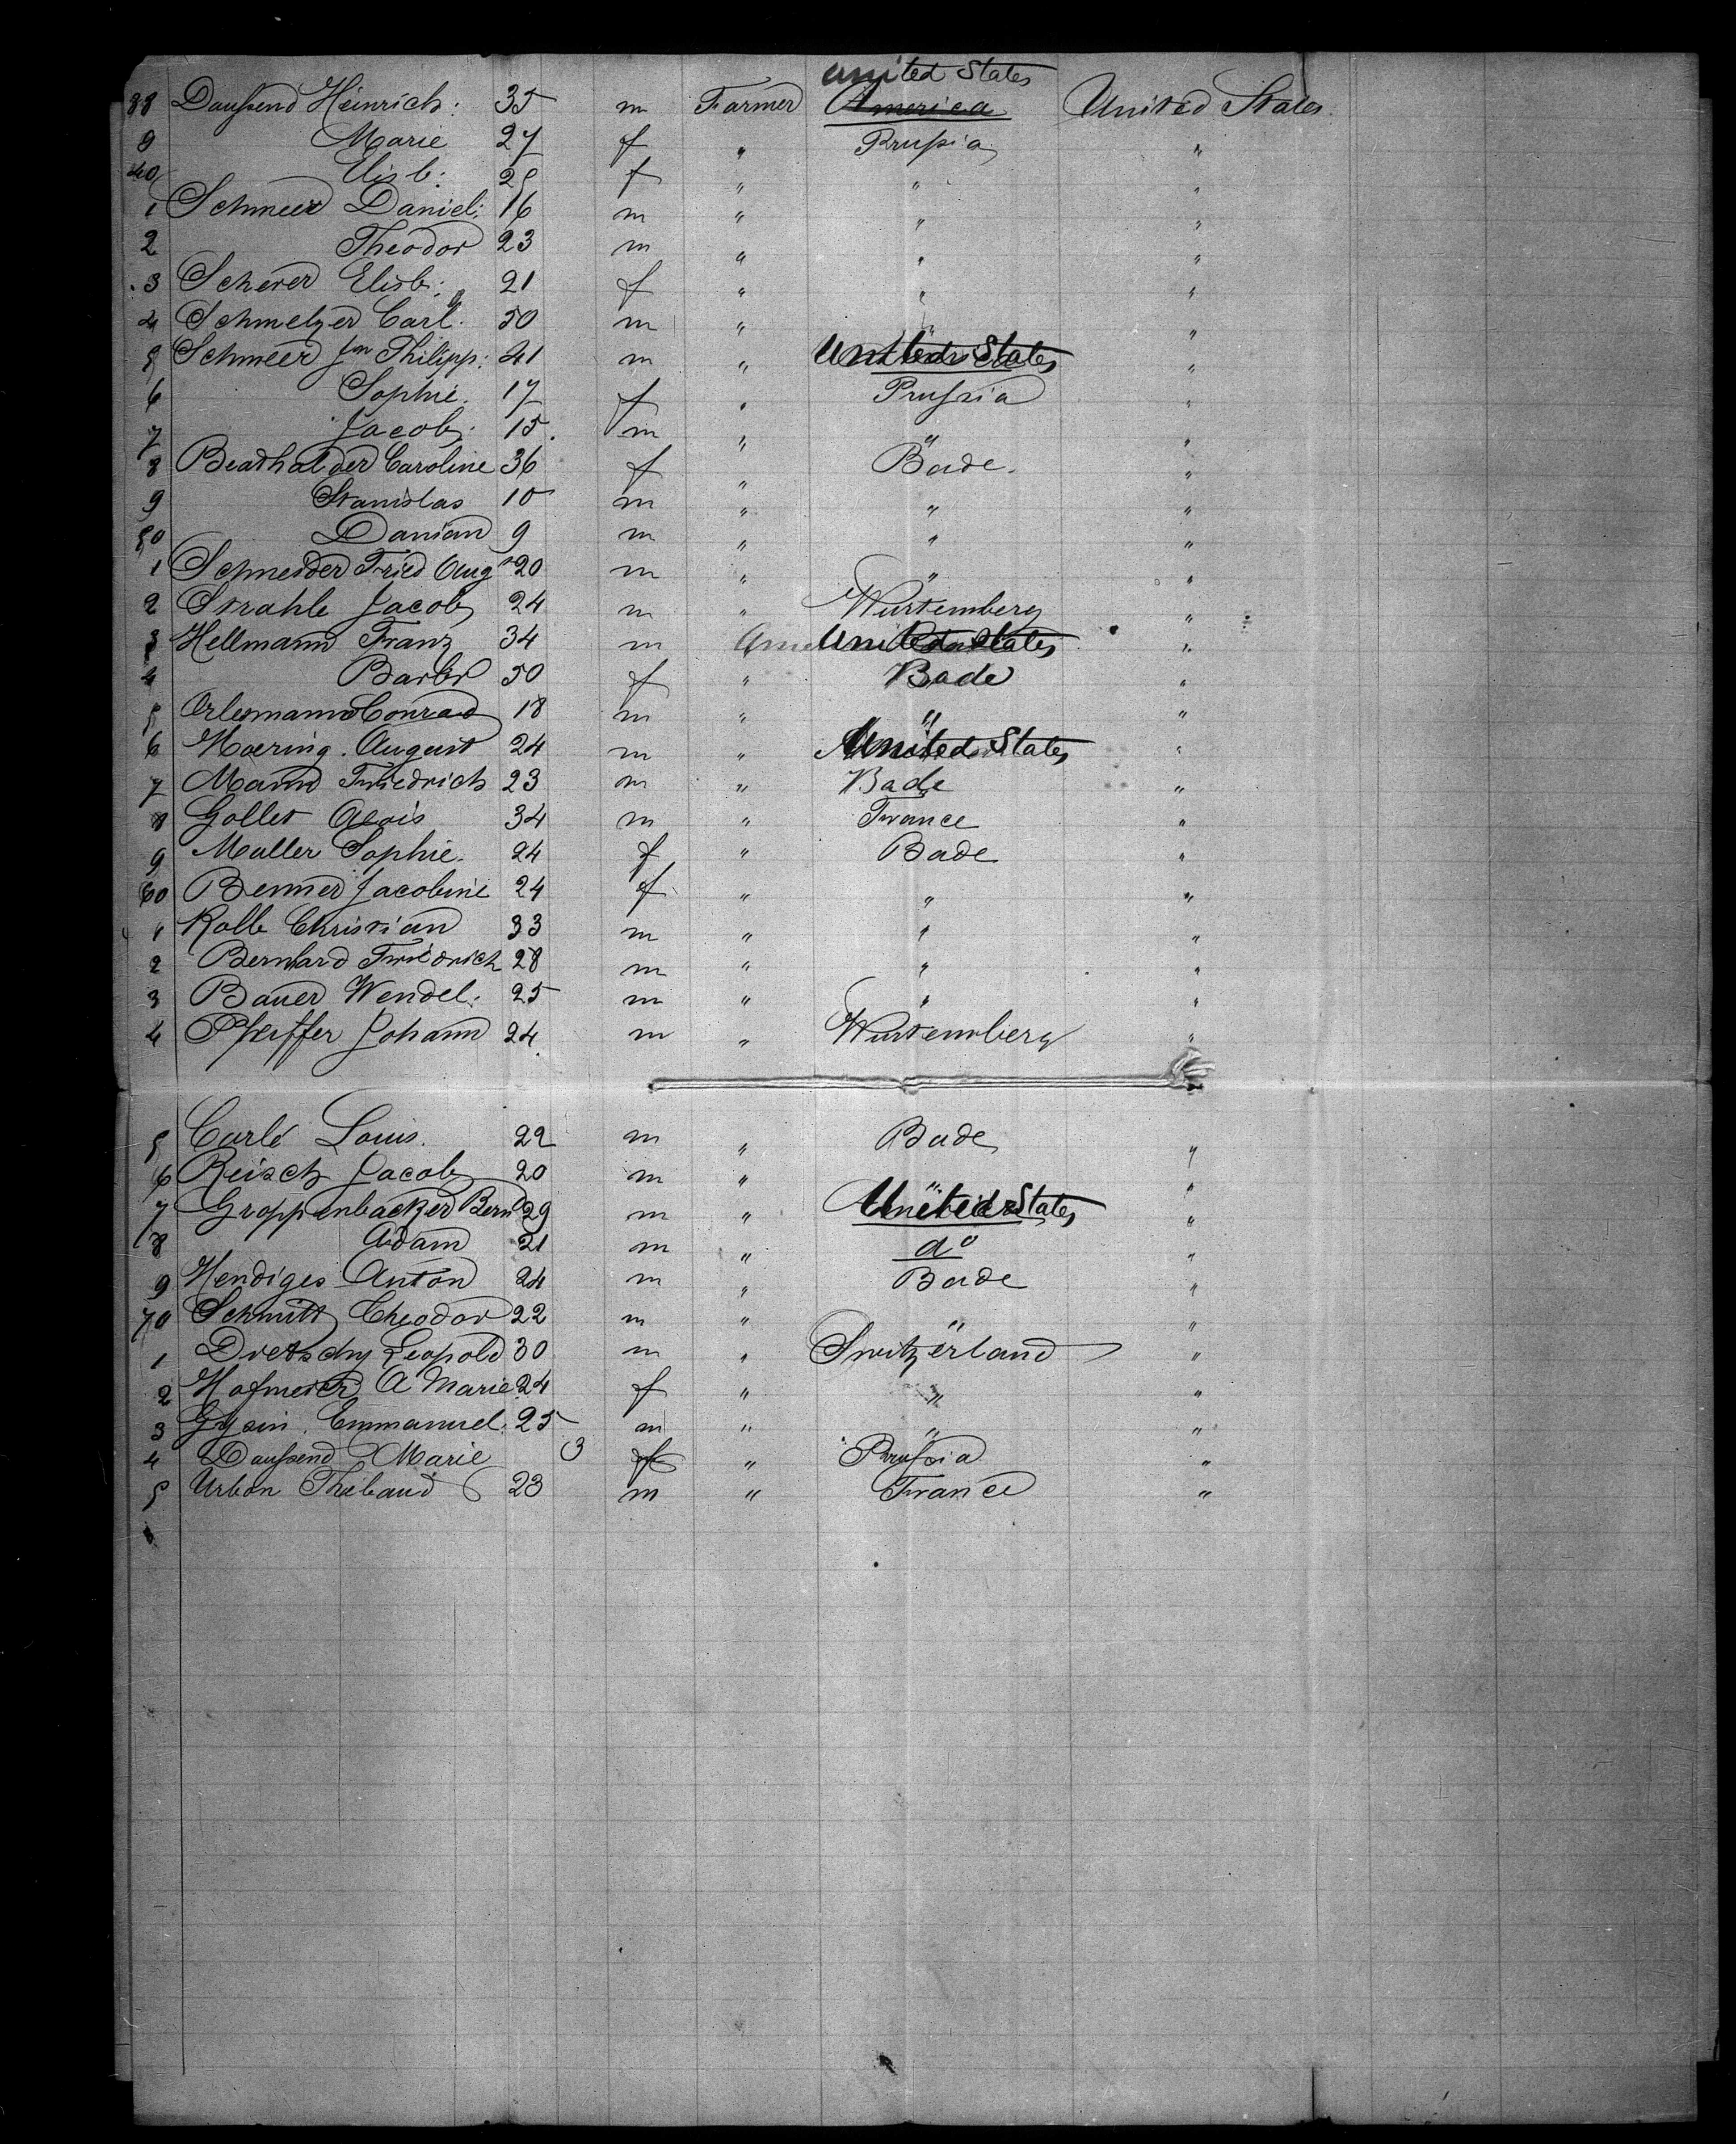 United States
38 Daußend Heinrich: 35 m Farmer America United States.
9 Marie 27 f " Prußia "
40 Elisb: 25 f " " "
1 Schmeer Daniel: 16 m " " "
2 Theodor 23 m " " "
3 Scherer Elisb: 21 f " " "
4 Schmelzer Carl. 50 m " " "
5 Schmeer Jn Philipp: 41 m " United States "
6 Sophie. 17 f " Prußia "
7 Jacob: 15. m " " "
8 Beathalder Caroline 36 f " Bade. "
9 Stanislas 10 m " " "
50 Danian 9 m " " "
1 Schneider Fried Aug 20 m " " "
2 Strahle Jacob 24 m " Wurtemberg "
3 Hellmann Franz 34 m United States "
4 Barbr 50 f " Bade "
5 Orlesmann Conrad 18 m " " "
6 Moering. August 24 m " United States "
7 Mann Friedrich 23 m " Bade "
8 Gollet Alois 34 m " France "
9 Muller Sophie. 24 f " Bade "
60 Benner Jacobine 24 f " " "
1 Kolb Christian 33 m " " "
2 Bernhard Friedrich 28 m " " "
3 Bauer Wendel. 25 m " " "
4 Pfeiffer Johann 24. m " Wurtemberg "
5 Carlé Louis. 22 m " Bade "
6 Reisch Jacob 20 m " " "
7 Groppenbacker Bernd 29 m " United States "
8 Adam 21 m " do "
9 Hendiges Anton 24 m " Bade "
70 Schmitt Theodor 22 m " " "
1 Dretschy Leopold 30 m " Switzerland "
2 Hofmeier A Marie 24 f " " "
3 Gysin. Emmanuel. 25 m " " "
4 Daußend Marie 3 f " Prußia "
5 Urban Thibaud 23 m " France "
6